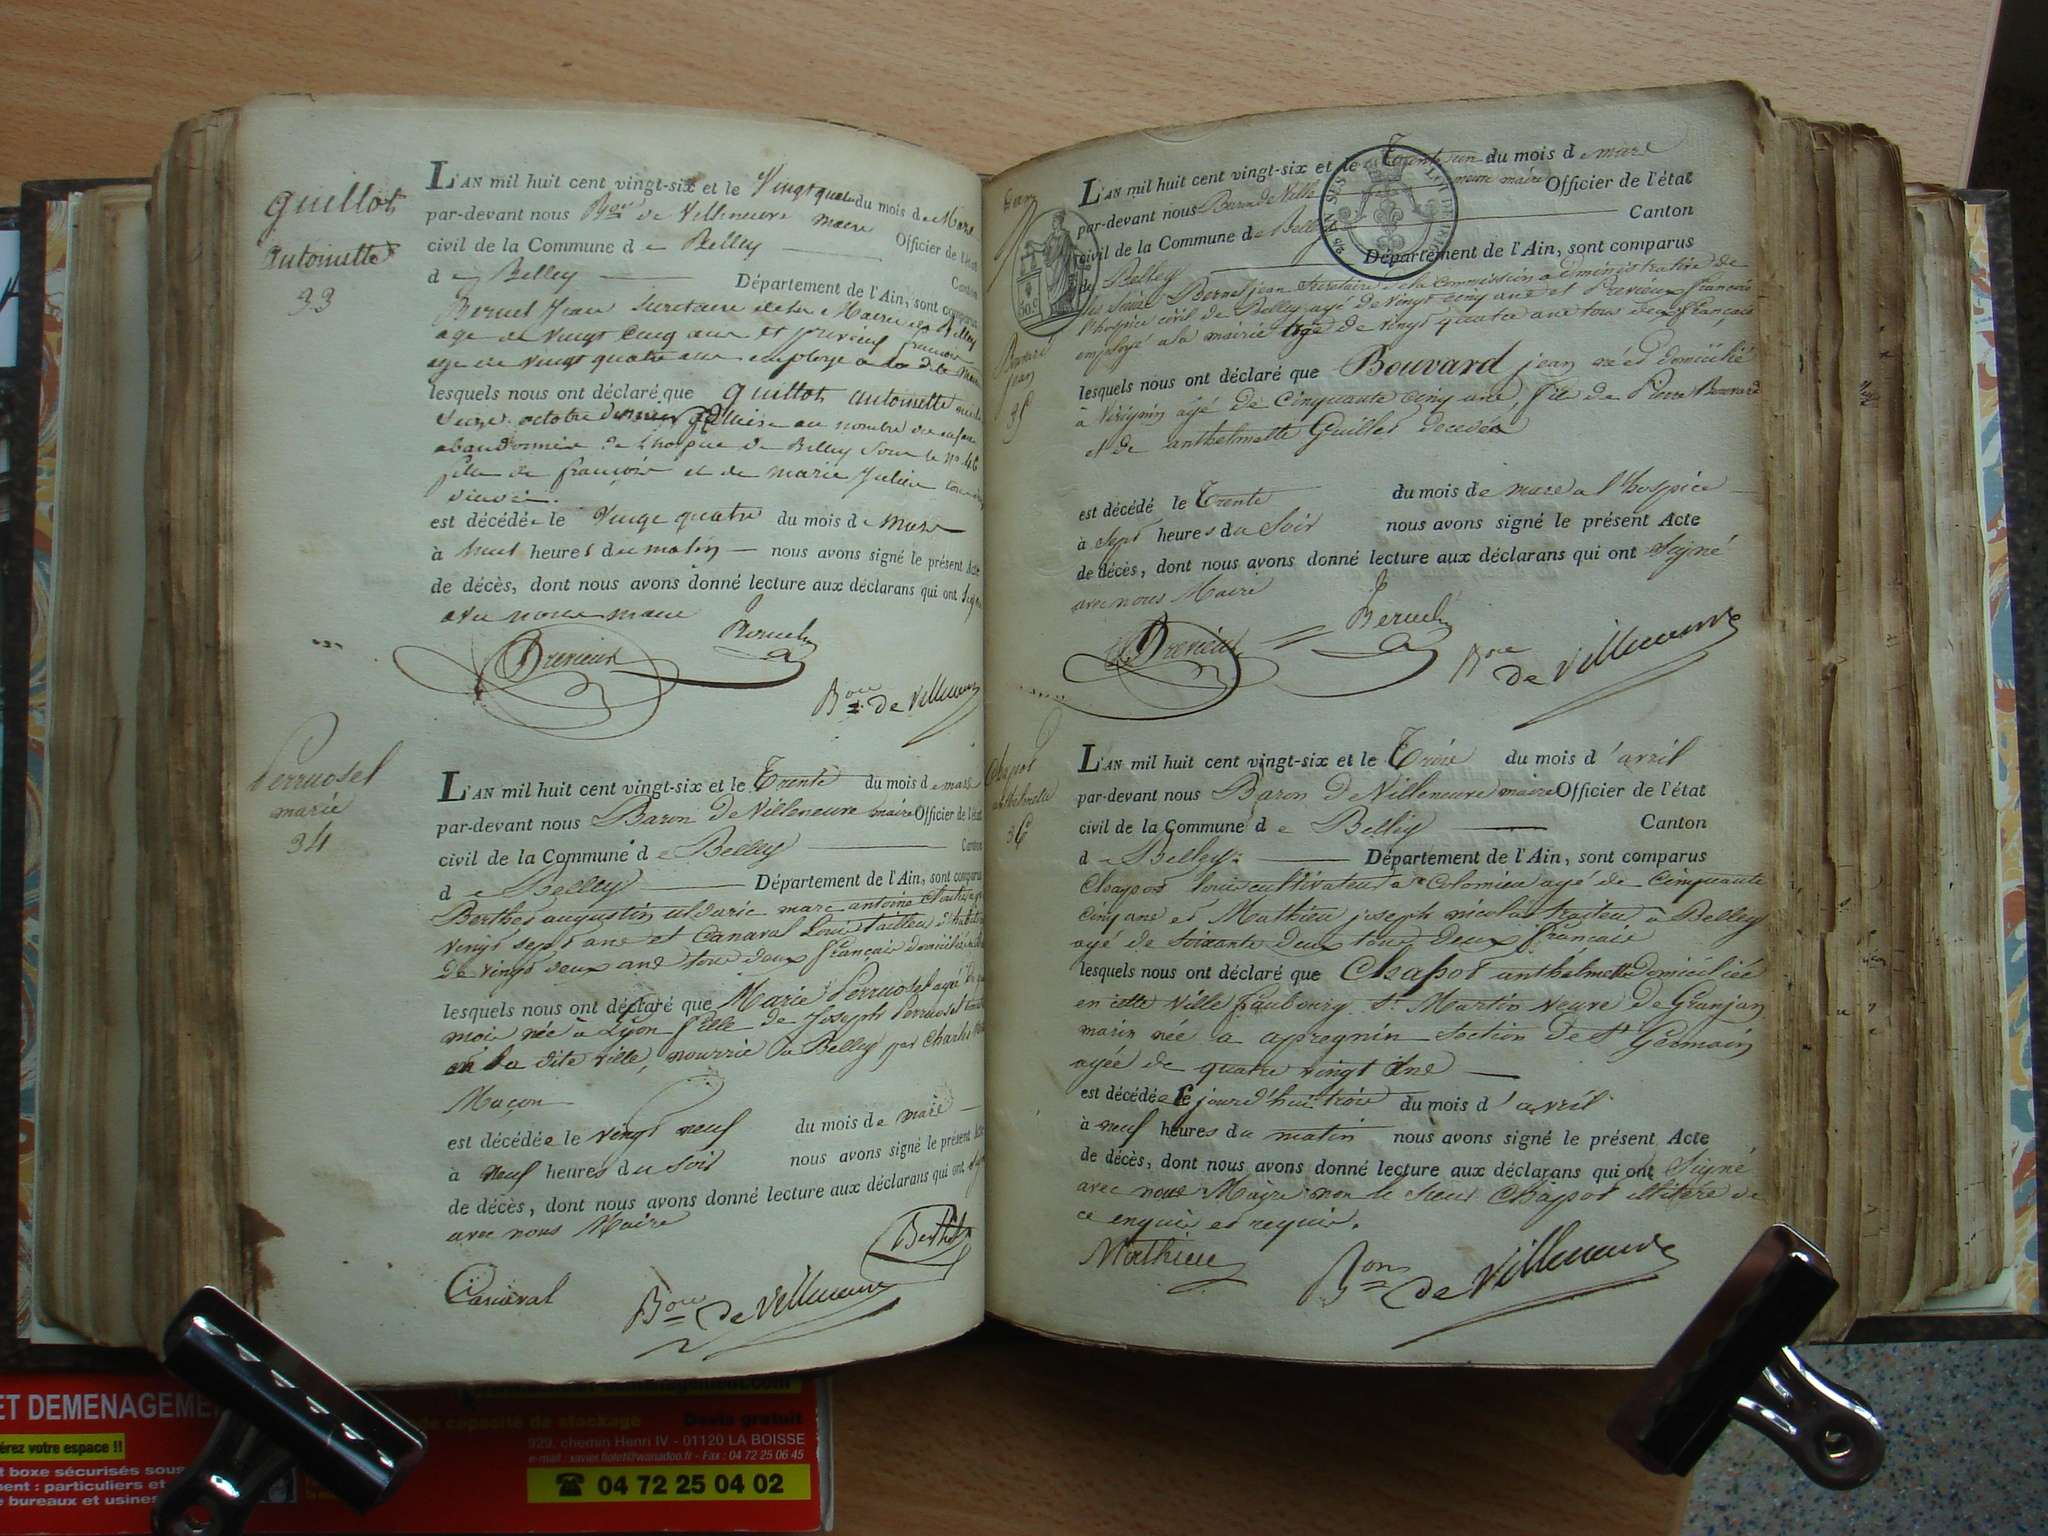 Guillot
Antoinette
33
L'AN mil huit cent vingt-six et le Vingt quatre du mois de Mars
par-devant nous Bon de Villeneuve maire Officier de l'état
civil de la Commune de Belley Canton
de Belley Département de l'Ain, sont comparus
Bernel Jean Secretaire de la Mairie de Belley
age de vingt cinq ans et previeux francois
age de vingt quatre ans employe a la dite Mairie
lesquels nous ont déclaré que Guillot antoinette
octobre au nombre des enfans
abandonnés de l'hospice de Belley Sous le no. 46
fille de francois et de marie Julien
est décédée le Vingt quatre du mois de Mars
à huit heures du matin nous avons signé le présent Acte
de décès, dont nous avons donné lecture aux déclarans qui ont Signé
avec nous maire
Previeux Bernel
Bon de Villeneuve
Perruosel
marie
34
L'AN mil huit cent vingt-six et le Trente du mois de mars
par-devant nous Baron de Villeneuve maire Officier de l'état
civil de la Commune de Belley Canton
de Belley Département de l'Ain, sont comparus
Berthet augustin uldaric marc antoine
vingt sept ans et Canaval Louis tailleur d'habits
de vingt deux ans tous deux français domiciliés
lesquels nous ont déclaré que Marie Perruosel agée de
mois née à Lyon fille de Joseph Perruosel
en la dite ville, nourrie à Belley par Charles
Maçon
est décédée le vingt neuf du mois de mars
à neuf heures du soir nous avons signé le présent Acte
de décès, dont nous avons donné lecture aux déclarans qui ont signé
avec nous Maire
Berthet
Canaval Bon de Villeneuve
L'AN mil huit cent vingt-six et le Trente un du mois de mars
par-devant nous Baron de Ville neuve maire Officier de l'état
civil de la Commune de Belley Canton
de Belley Département de l'Ain, sont comparus
les Sieurs Bernel jean Secretaire de la Commission administrative de
l'hospice civil de Belley agé de vingt cinq ans et Previeux francois
employé a la mairie agé de vingt quatre ans tous deux français
50 c
Bouvard
jean
35
lesquels nous ont déclaré que Bouvard jean né et domicilié
à Virignin agé de cinquante cinq ans fils de Pierre Bouvard
et de anthelmette Guillot decedés
est décédé le Trente du mois de mars a l'hospice
à Sept heures du Soir nous avons signé le présent Acte
de décès, dont nous avons donné lecture aux déclarans qui ont Signé
avec nous Maire
Previeux Bernel
Bon de Villeneuve
Chapot
anthelmette
36
L'AN mil huit cent vingt-six et le Trois du mois d'avril
par-devant nous Baron De Villeneuve maire Officier de l'état
civil de la Commune de Belley Canton
de Belley Département de l'Ain, sont comparus
Chapot louis cultivateur a Colomieu agé de cinquante
cinq ans et Mathieu joseph nicolas traiteur à Belley
agé de soixante deux tous deux français
lesquels nous ont déclaré que Chapot anthelmette domiciliée
en cette ville faubourg St Martin veuve de Granjan
marin née a apregnin Section De St Germain
agée de quatre vingt ans
est décédée le jourd'hui trois du mois d'avril
à neuf heures du matin nous avons signé le présent Acte
de décès, dont nous avons donné lecture aux déclarans qui ont Signé
avec nous Maire non le sieur Chapot illitéré de
ce enquis et requis.
Mathieu Bon de Villeneuve
ET DEMENAGEME
de capacité de stockage Devis gratuit
érez votre espace !!
929, chemin Henri IV - 01120 LA BOISSE
e-mail : xavier.fiolet@wanadoo.fr - Fax : 04 72 25 06 45
t boxe sécurisés sous
ment : particuliers et
e bureaux et usines
04 72 25 04 02